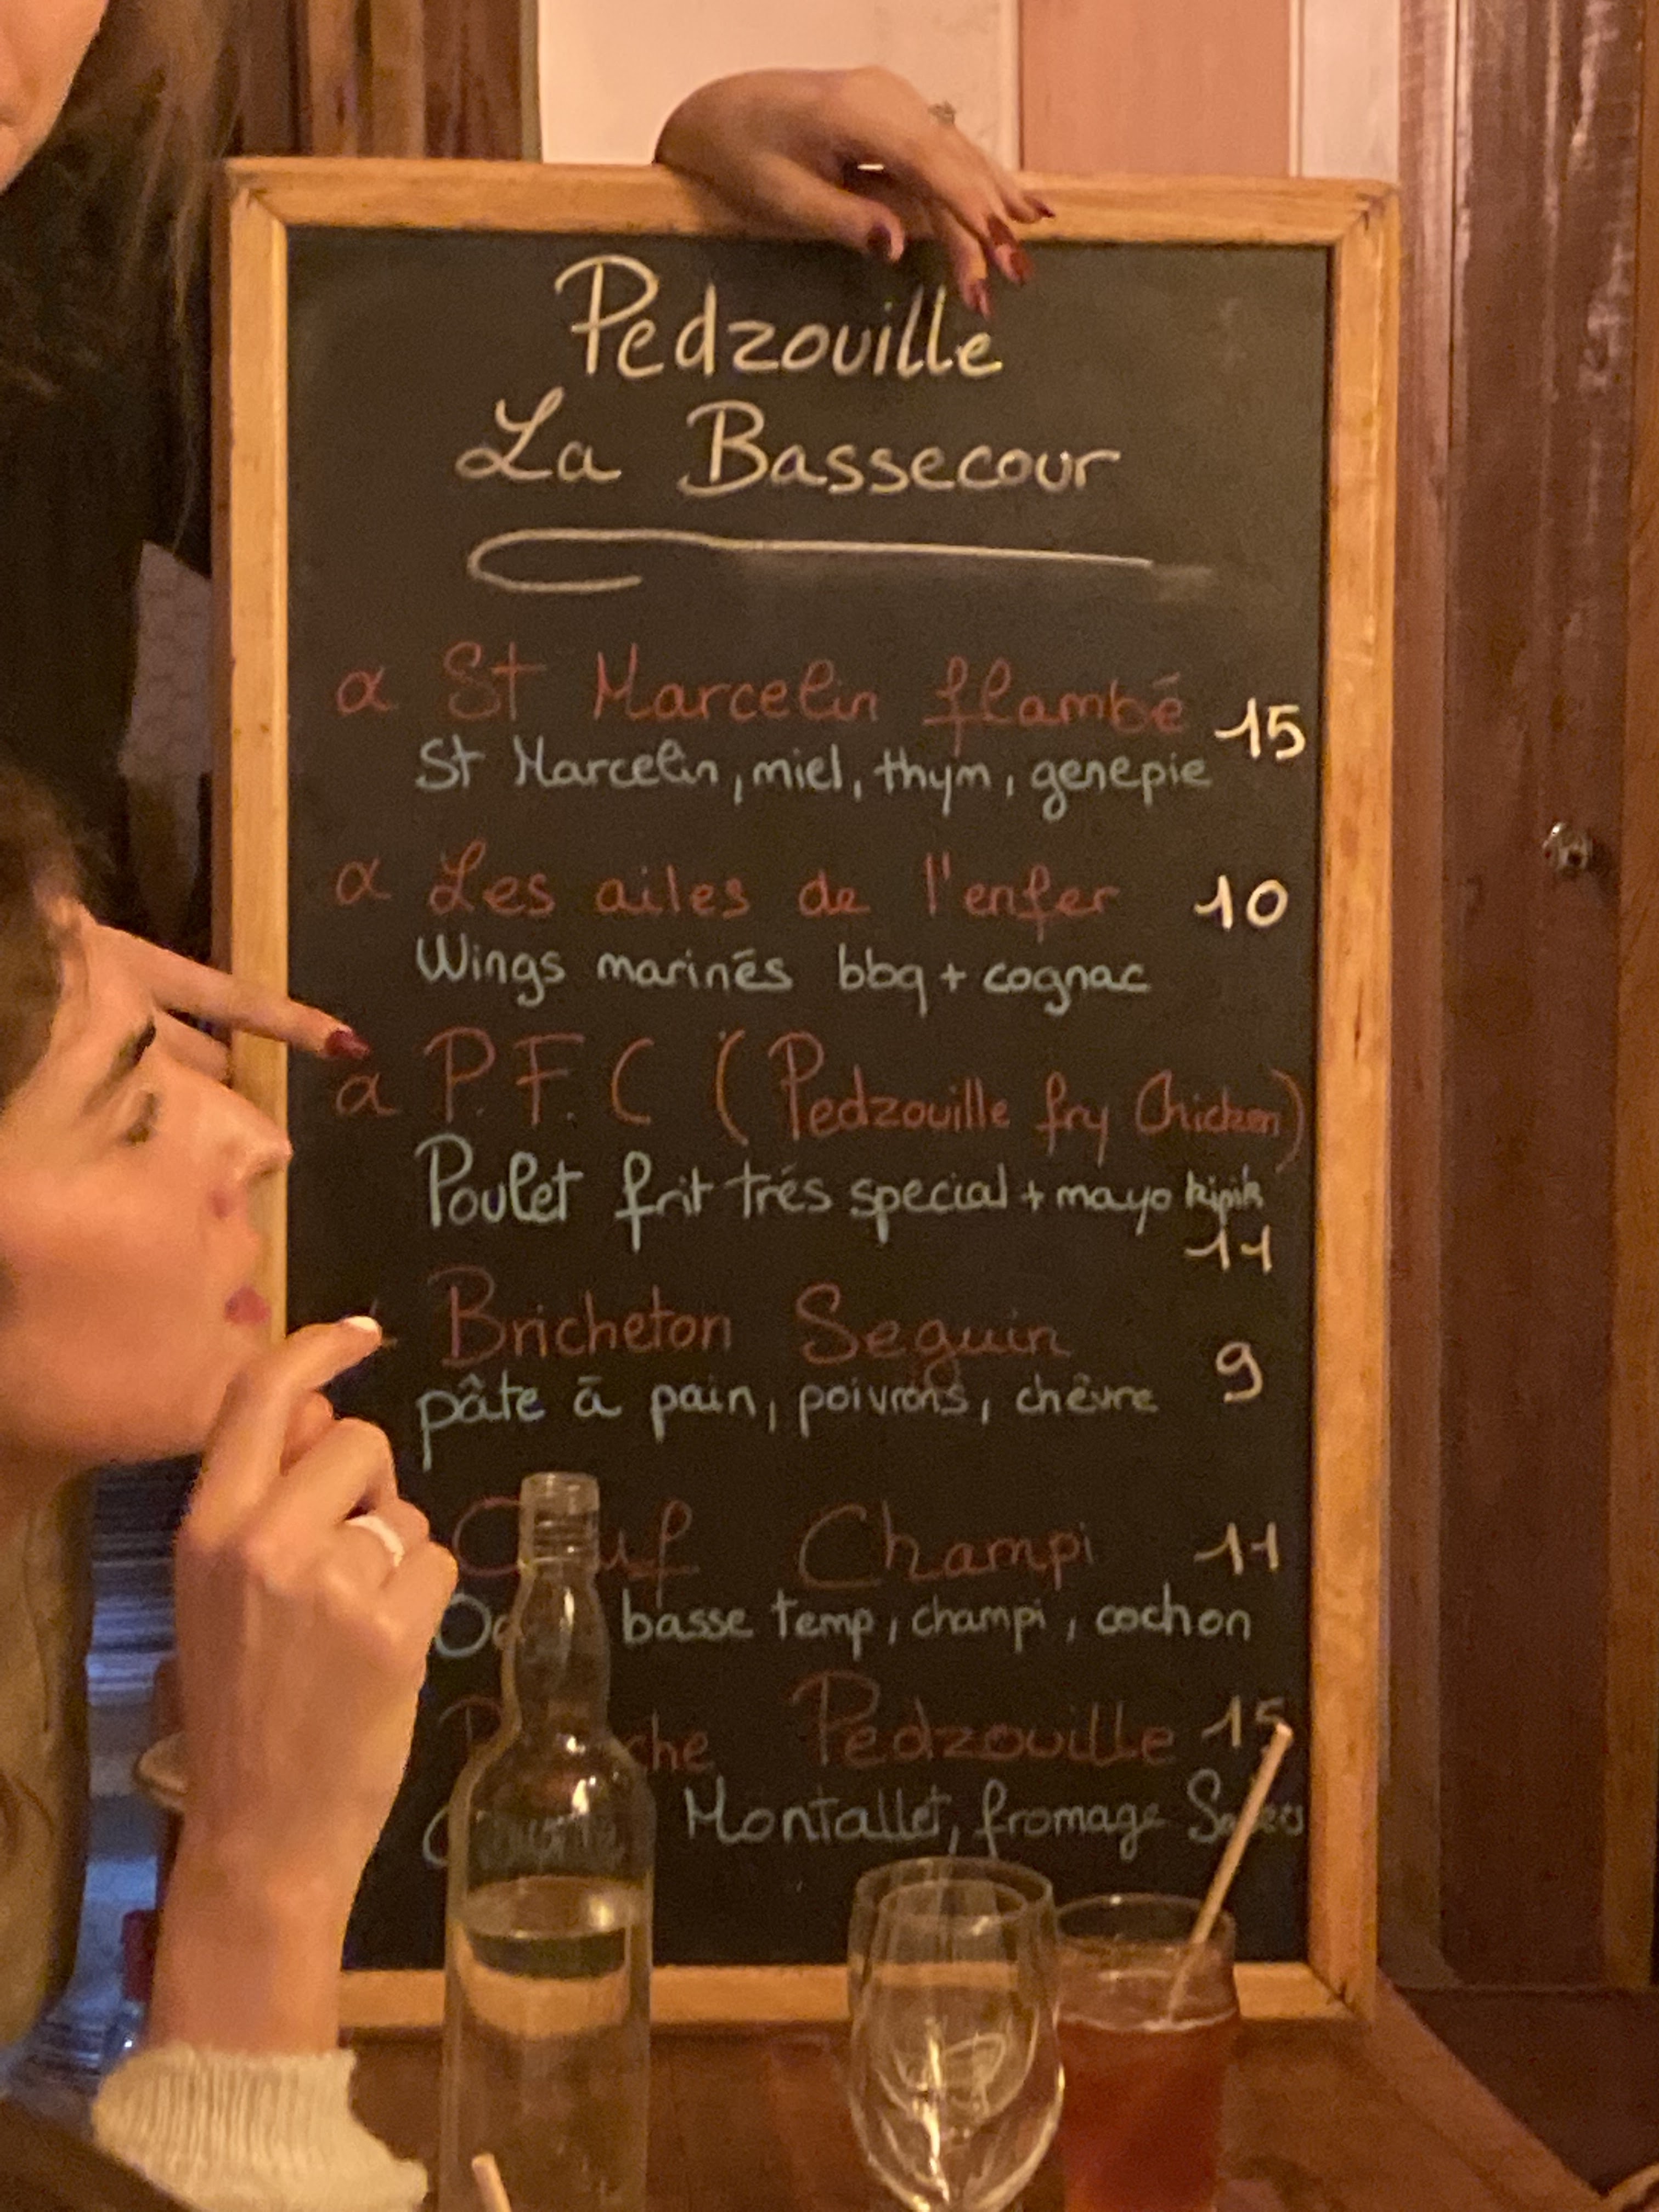 Pedzouille
La Bassecour
α St Marcelin flambé 15
St Marcelin, miel, thym, genepie
α Les ailes de l'enfer 10
Wings marinés bbq + cognac
α P.F.C (Pedzouille fry Chicken)
Poulet frit trés special + mayo kipik
11
Bricheton Seguin 9
pâte à pain, poivrons, chêvre
Champi 11
basse temp, champi, cochon
Pedzouille 15
Montallet, fromage